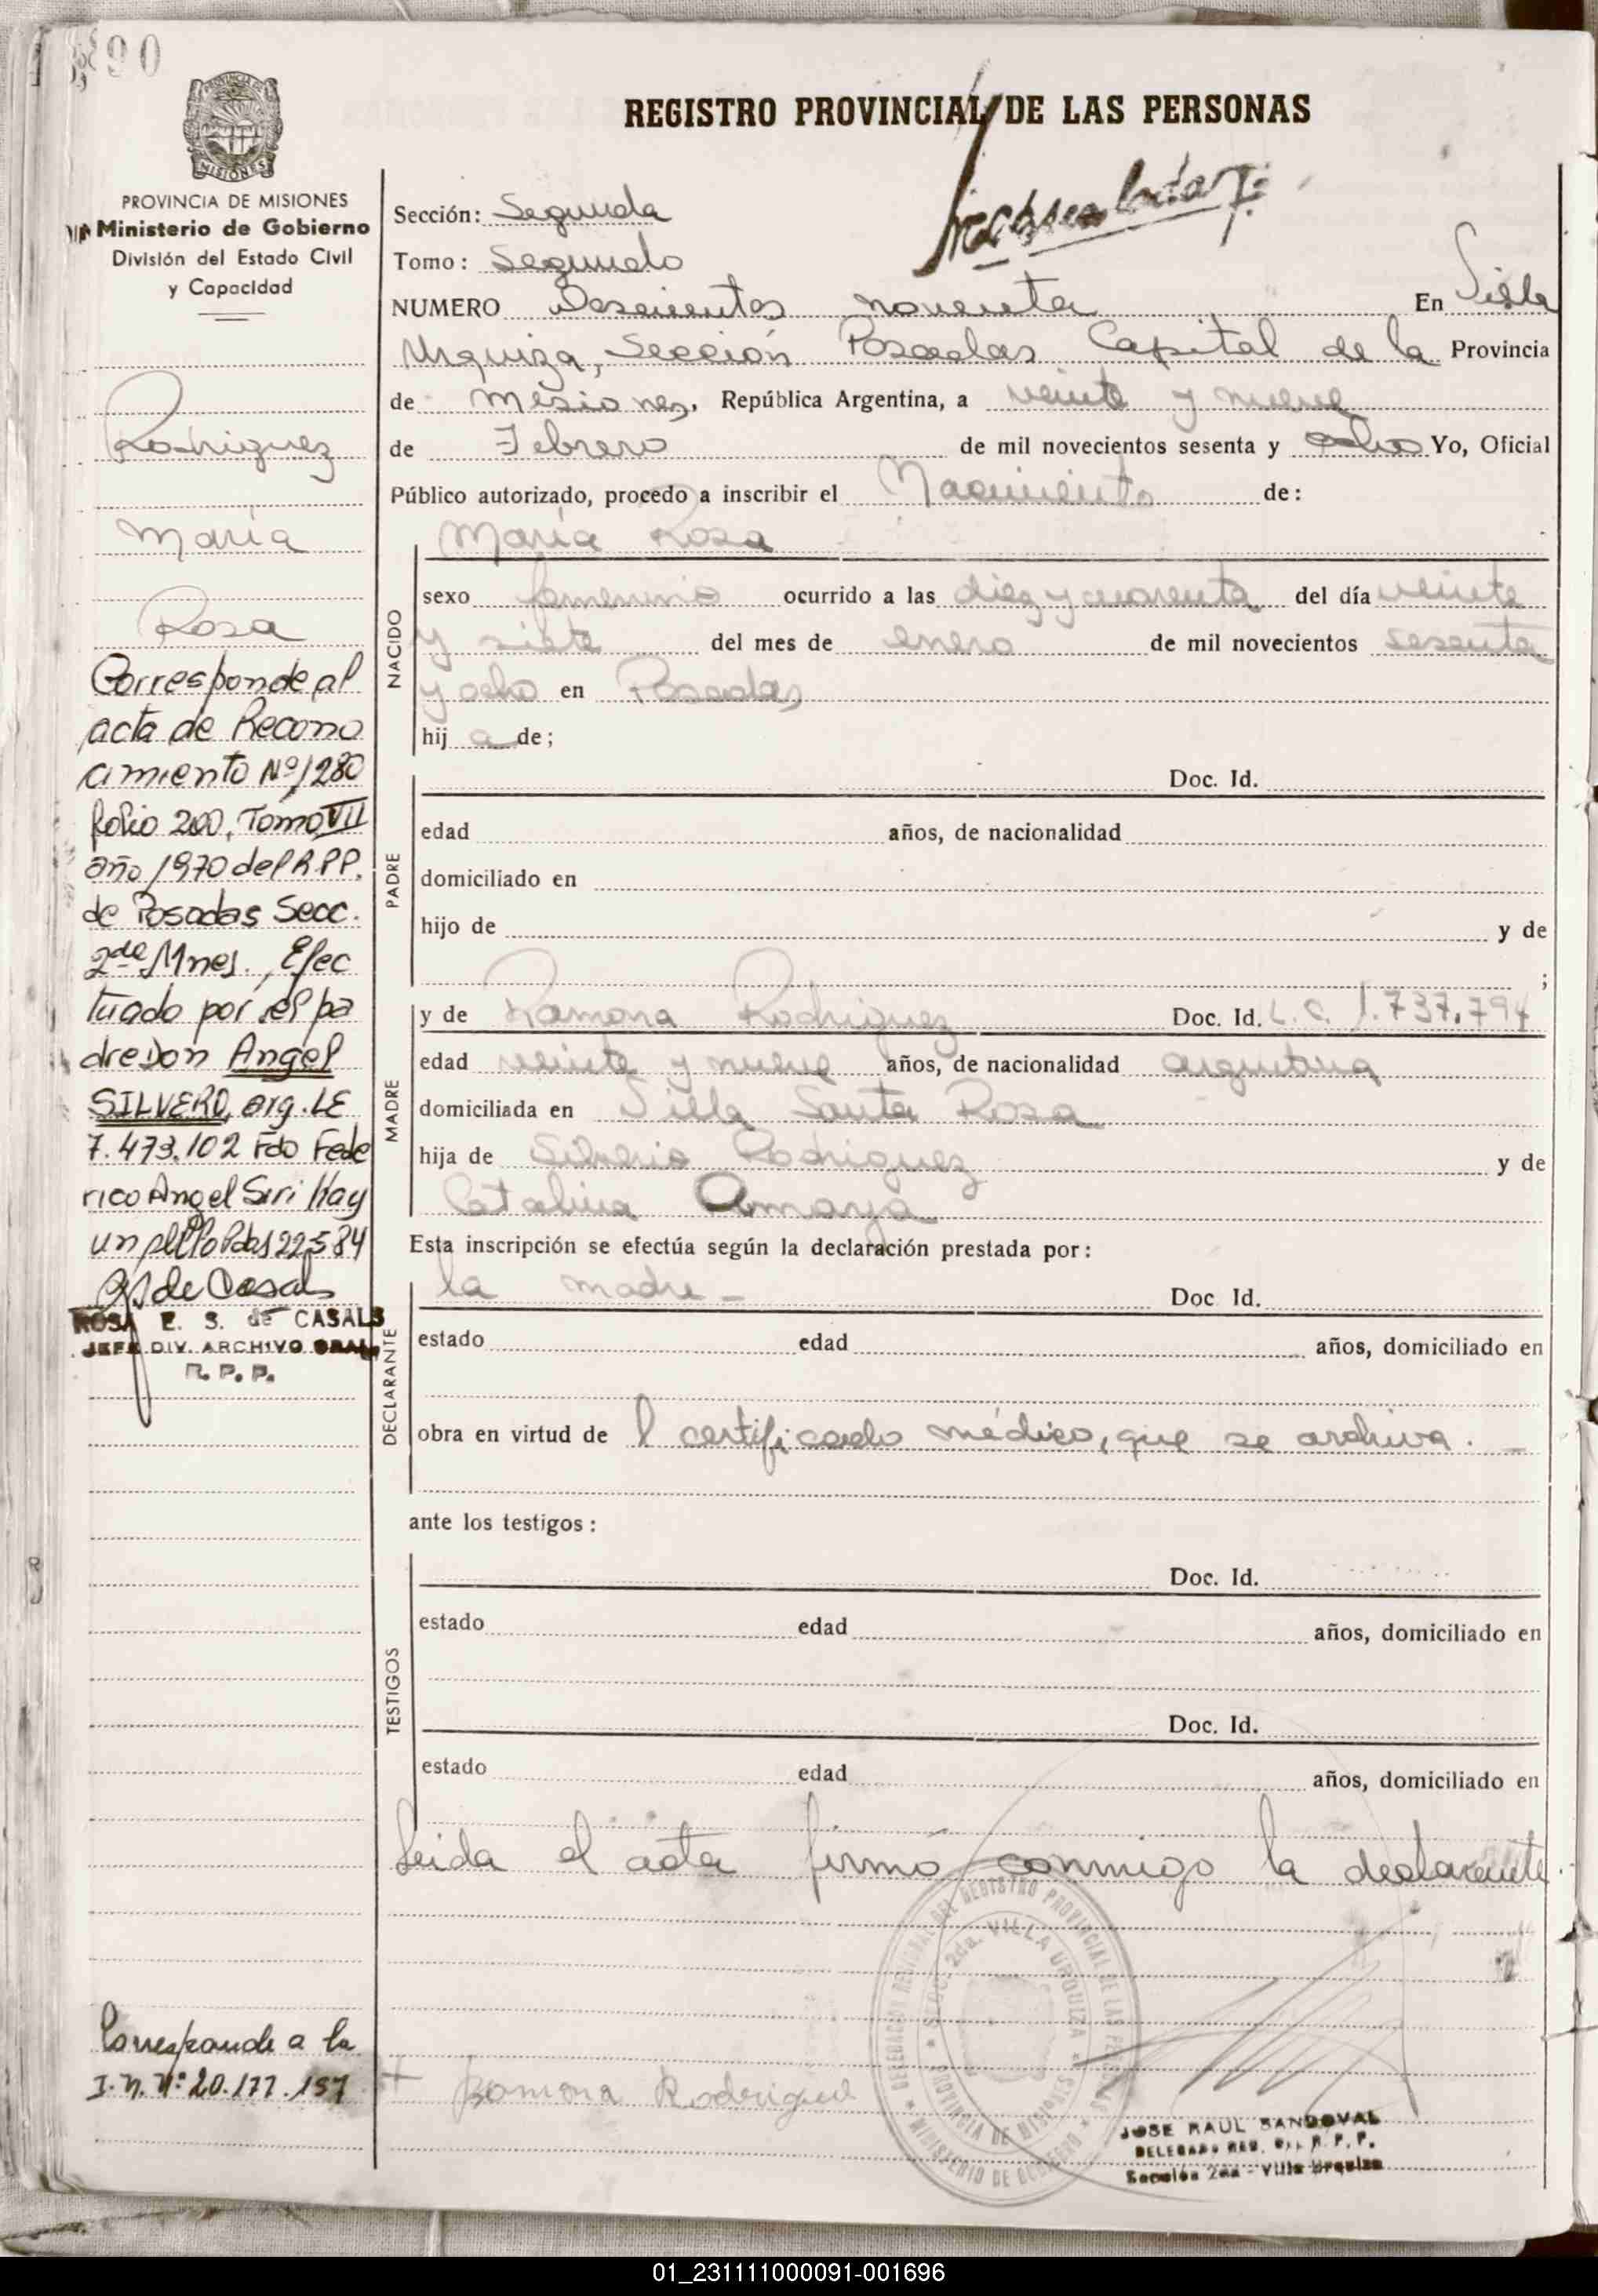 90
REGISTRO PROVINCIAL DE LAS PERSONAS
PROVINCIA DE MISIONES
Ministerio de Gobierno
División del Estado Civil
y Capacidad
Rodriguez
María
Rosa
Corresponde al
acta de Recono
cimiento Nº 1280
folio 200, Tomo VII
año 1970 del R.P.P.
de Posadas Secc.
2da Mnes., Efec
tuado por el pa
dre Don Angel
SILVERO, arg. LE
7.473.102 Fdo Fede
rico Angel Siri Hay
un sello Pdas 22584
ROSA E. S. de CASALS
JEFE DIV. ARCHIVO GRAL
R. P. P.
Corresponde a la
I.N. Nº 20.177.157
Sección: Segunda
Tomo: Segundo
NUMERO Doscientos noventa En Villa
Urquiza, Sección Posadas Capital de la Provincia
de Misiones, República Argentina, a veinte y nueve
de Febrero de mil novecientos sesenta y ocho Yo, Oficial
Público autorizado, procedo a inscribir el Nacimiento de:
María Rosa
NACIDO
sexo femenino ocurrido a las diez y cuarenta del día veinte
y siete del mes de enero de mil novecientos sesenta
y ocho en Posadas
hij a de;
Doc. Id.
PADRE
edad años, de nacionalidad
domiciliado en
hijo de y de
;
y de Ramona Rodriguez Doc. Id. L.C. 1.737.794
MADRE
edad veinte y nueve años, de nacionalidad argentina
domiciliada en Villa Santa Rosa
hija de Silverio Rodriguez y de
Catalina Amaya
Esta inscripción se efectúa según la declaración prestada por:
la madre - Doc Id.
DECLARANTE
estado edad años, domiciliado en
obra en virtud de l certificado médico, que se archiva. -
ante los testigos:
Doc. Id.
TESTIGOS
estado edad años, domiciliado en
Doc. Id.
estado edad años, domiciliado en
Leida el acta firmó conmigo la declarante
Ramona Rodriguez
DELEGACION REGIONAL DEL REGISTRO PROVINCIAL DE LAS PERSONAS
MINISTERIO DE GOBIERNO
SECC. 2da. VILLA URQUIZA
PROVINCIA DE MISIONES
JOSE RAUL SANDOVAL
DELEGADO REG. DEL R. P. P.
Sección 2da - Villa Urquiza
01_231111000091-001696